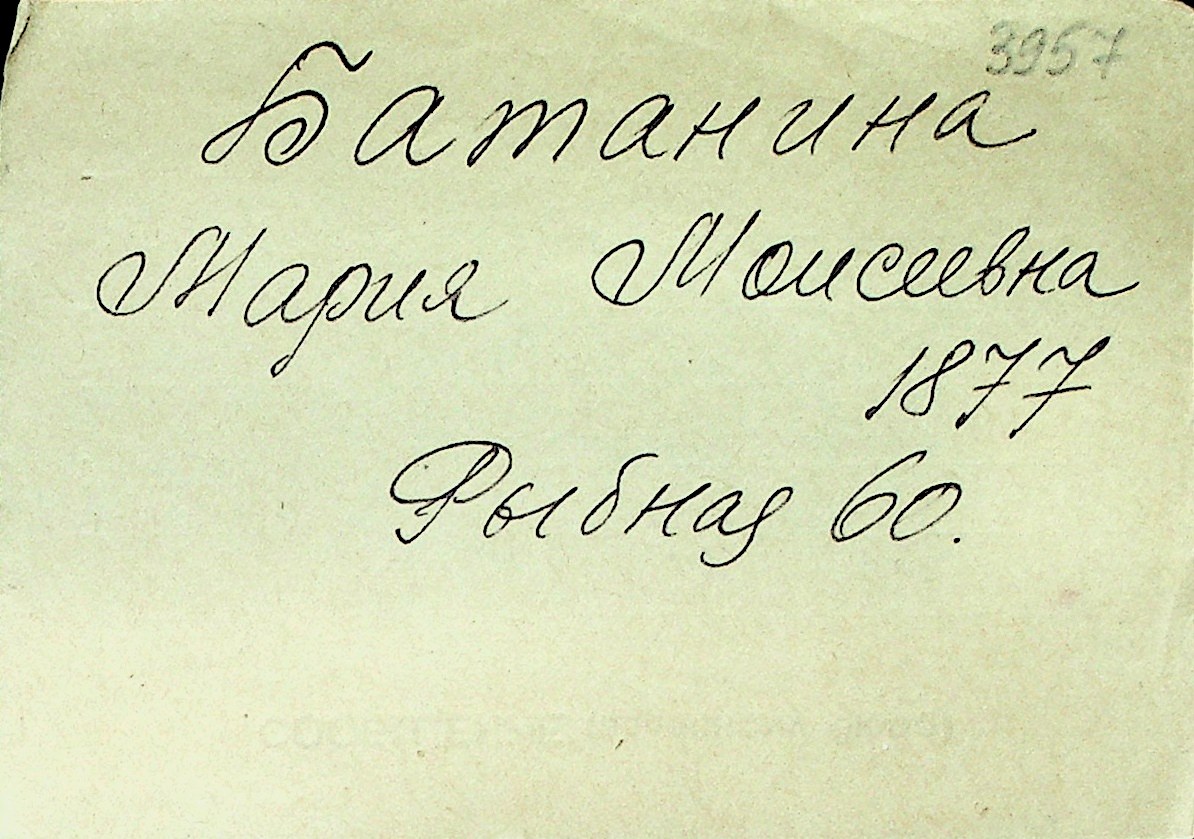 3957
Батанина
Мария Моисеевна
1877
Рыбная 60.